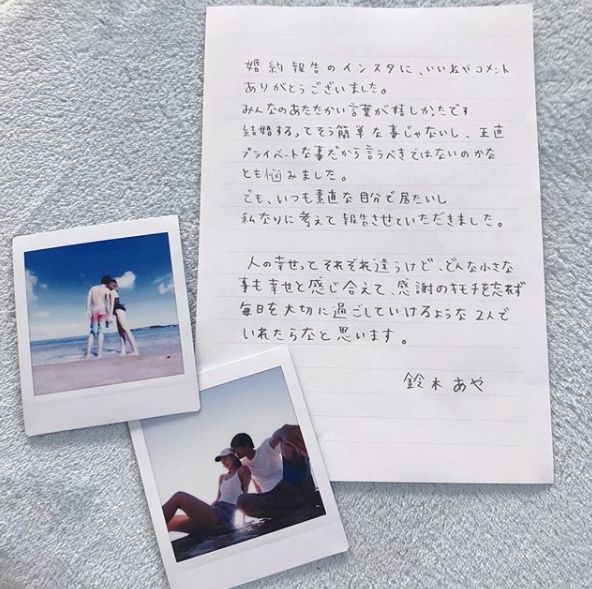 婚約報告のインスタに、いいねやコメント
ありがとうございました。
みんなのあたたかい言葉が嬉しかたです
結婚するってそう簡単な事じゃないし、正直
プライベートな事だから言うべきではないのかな
とも悩みました。
でも、いつも素直な自分で居たいし
私なりに考えて報告させていただきました。
人の幸せってそれぞれ違うけど、どんな小さな
事も幸せと感じ合えて、感謝のキモチを忘れず
毎日を大切に過ごしていけるような2人で
いれたらなと思います。
鈴木あや